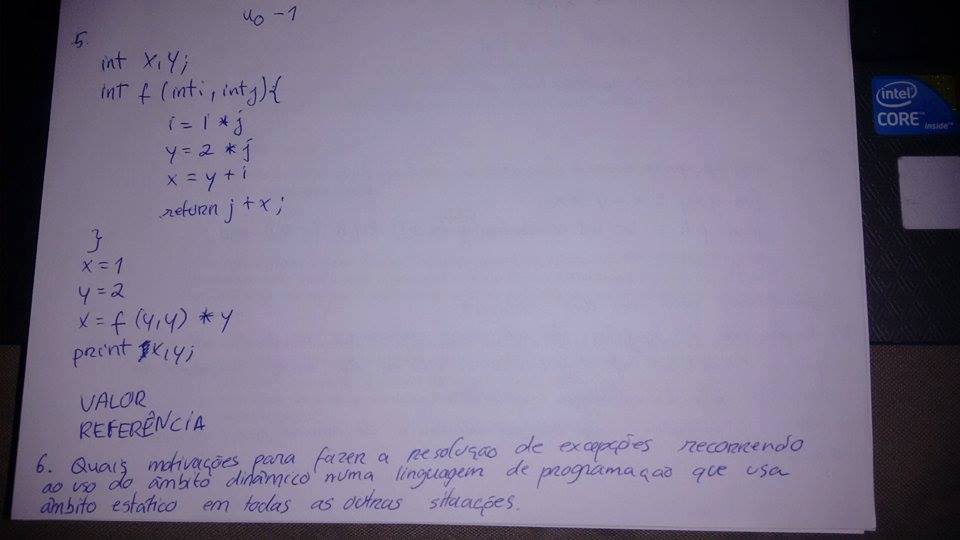 u0 -1
5.
int x,y;
int f (int i, int j){
i = i * j
y = 2 * j
x = y + i
return j + x;
}
x = 1
y = 2
x = f (y,y) * y
print x,y;
VALOR
REFERÊNCIA
6. Quais motivações para fazer a resolução de excepções recorrendo
ao uso do âmbito dinâmico numa linguagem de programação que usa
âmbito estático em todas as outras situações.
intel
CORE
inside